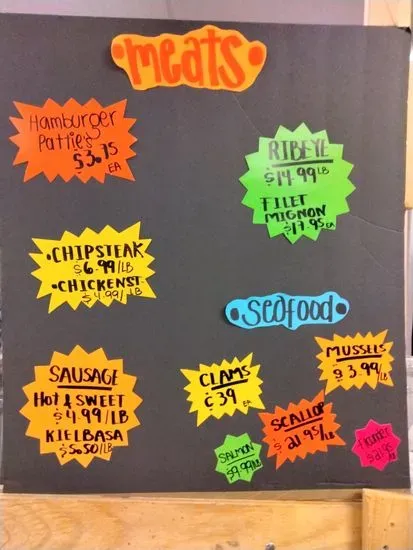 meats
Hamburger
Patties
$3.75
EA
RIBEYE
$14.99 LB
FILET
MIGNON
$17.95 EA
•CHIPSTEAK
$6.99/LB
•CHICKENST
$4.99/LB
Seafood
SAUSAGE
HOT & SWEET
$4.99/LB
KIELBASA
$5.50/LB
CLAMS
¢39 EA
MUSSELS
$3.99/LB
SCALLOP
$21.95/LB
SALMON
$9.99/LB
Flounder